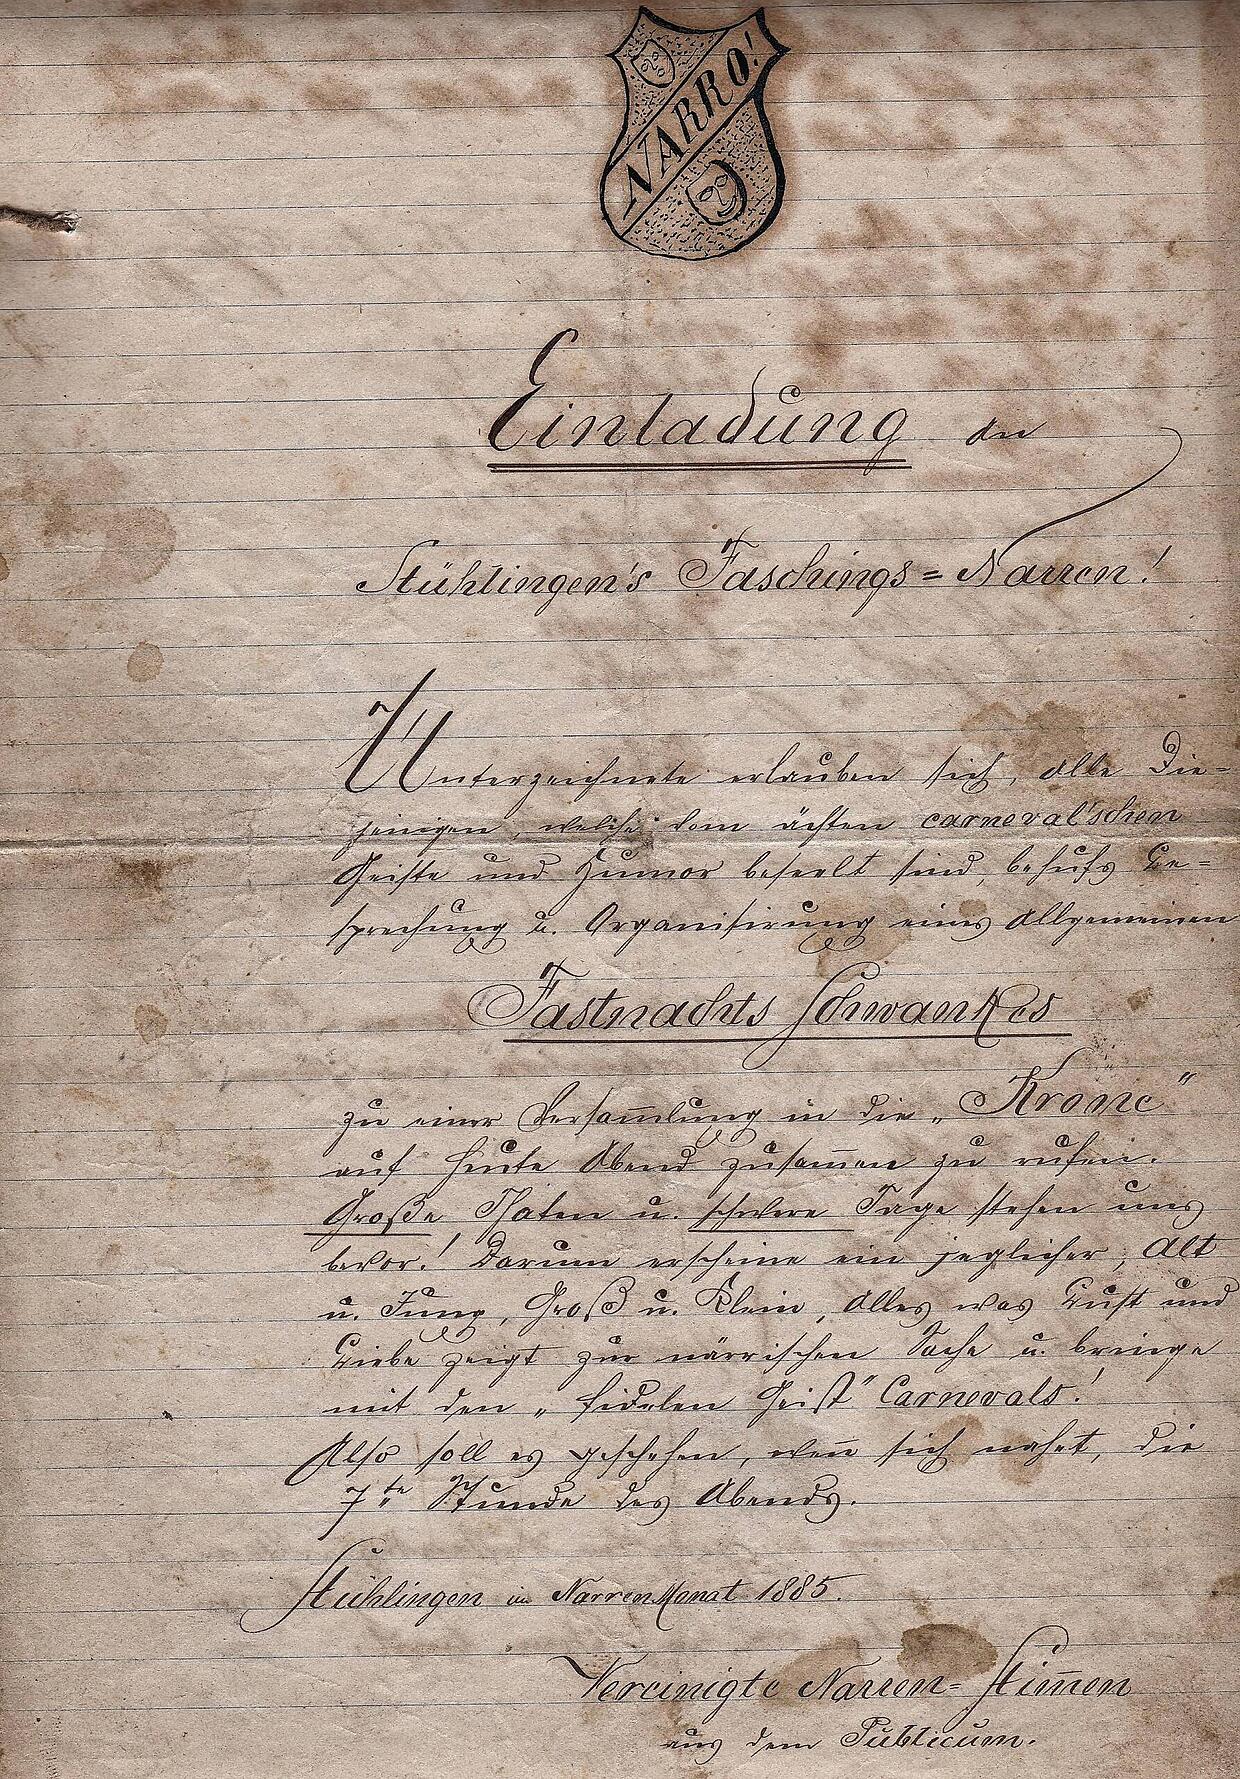 NARRO!
Einladung an
Stühlingen's Faschings=Narren!
Unterzeichnete erlauben sich, alle Die=
jenigen, welche vom ächten carneval'schen
Geiste und Humor beseelt sind, behufs Be=
sprechung u. Organisirung eines Allgemeinen
Fastnachts Schwankes
zu einer Versam̅lung in die „Krone"
auf heute Abend zusam̅en zu rufen.
Große Thaten u. schwere Tage stehen uns
bevor! Darum erscheine ein jeglicher, Alt
u. Jung, Groß u. Klein, Alles was Lust und
Liebe zeigt zur närrischen Sache u. bringe
mit den „fidelen Geist" Carnevals!
Also soll es geschehen, wen̅ sich nahet, die
7te Stunde des Abends.
Stühlingen im NarrenMonat 1885.
Vereinigte Narren=Stim̅en
aus dem Publicum.